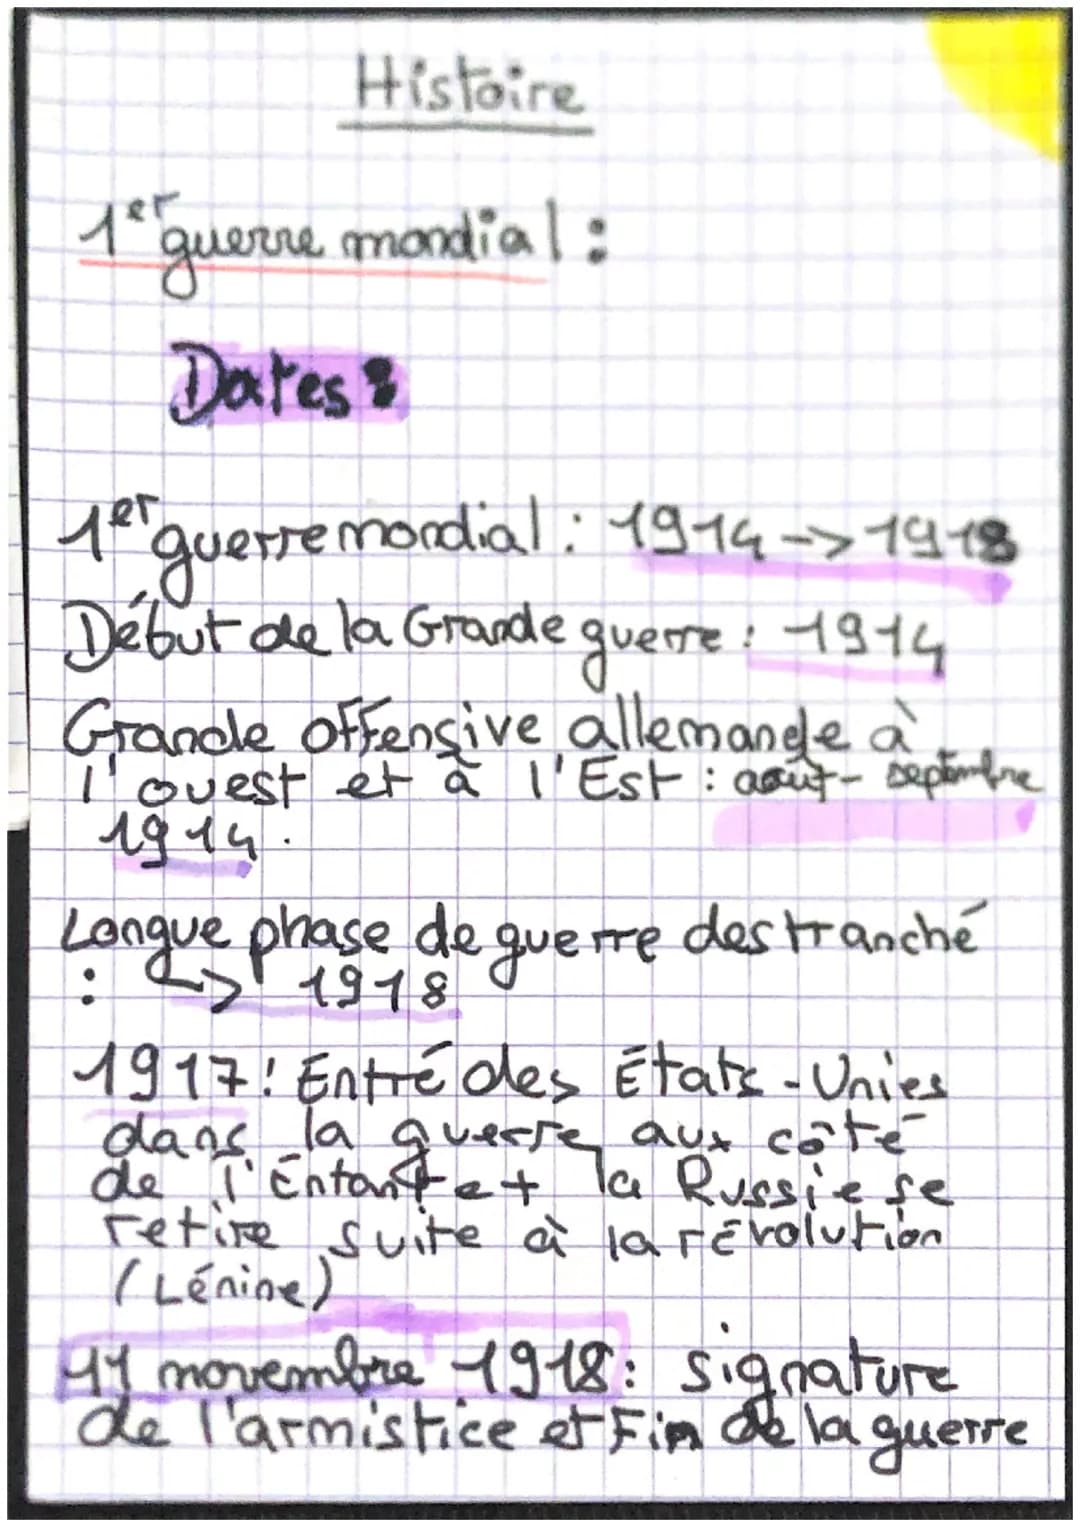 Histoire
1er guerre mondial :
Dates :
1er guerre mondial : 1914 -> 1918
Début de la Grande guerre : 1914
Grande offensive allemande à
l'ouest et à l'Est : août - septembre
1914.
Longue phase de guerre des tranché
: -> 1918
1917 : Entré des États - Unies
dans la guerre aux côté
de l'Entante et la Russie se
retire suite à la révolution
(Lénine)
11 novembre 1918 : signature
de l'armistice et Fin de la guerre